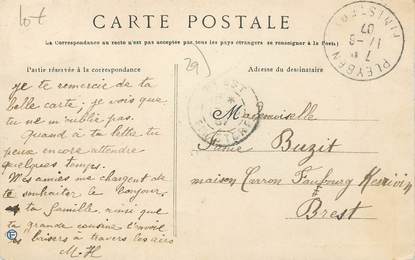 lot
CARTE POSTALE
(La Correspondance au recto n'est pas acceptée par tous les pays étrangers se renseigner à la Poste)
Partie réservée à la correspondance
Adresse du destinataire
29
PLEYBEN
FINISTERE
07
BREST
FINISTERE
je te remercie de ta
belle carte; je vois que
tu ne m'oublie pas.
Quand à ta lettre tu
peux encore attendre
quelques temps.
Mes amies me chargent de
te souhaiter le bonjour
ta famille, ainsi que
ta grande cousine t'envoil
baisers à travers les airs
M. H
Mademoiselle
Buzit
maison Carron Faubourg
Brest